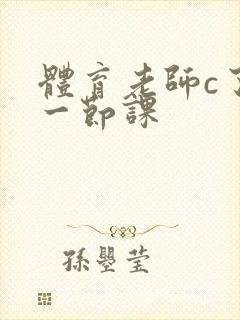 體育老師c了
一節課
孫曌莹